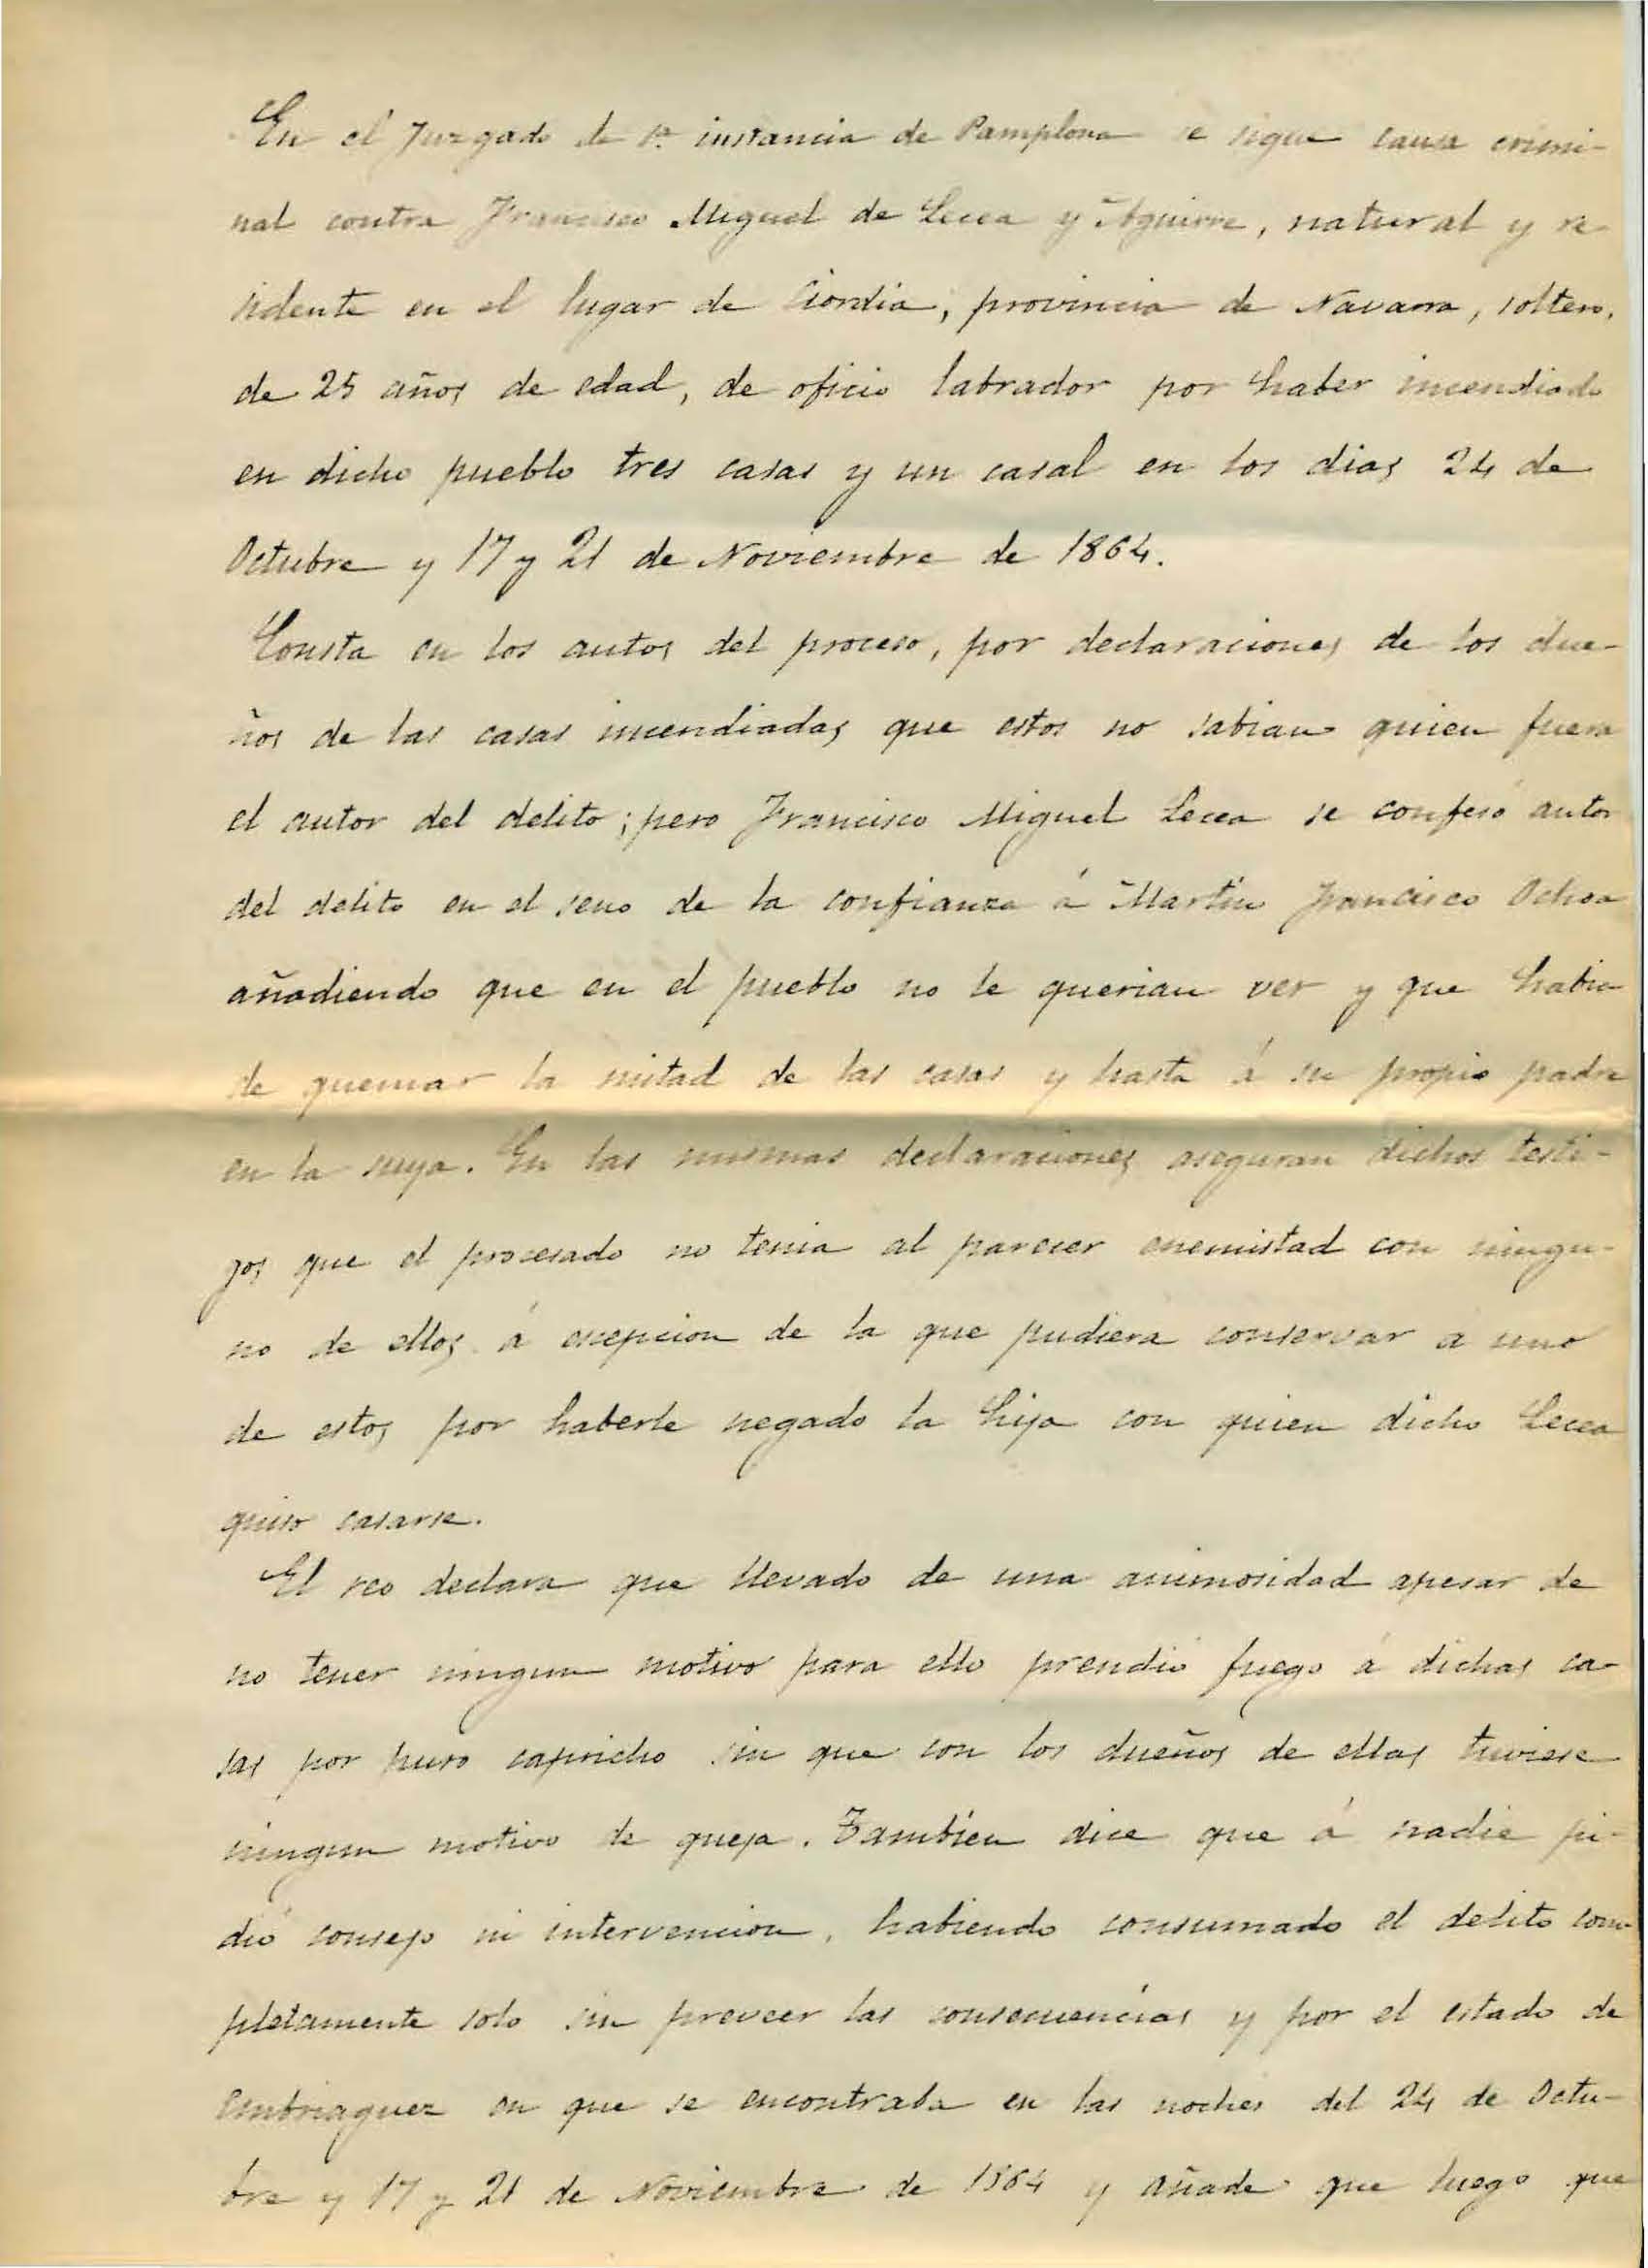 En el Juzgado de 1ª instancia de Pamplona se sigue causa crimi-
nal contra Francisco Miguel de Lecea y Aguirre, natural y re-
sidente en el lugar de Ciordia, provincia de Navarra, soltero,
de 25 años de edad, de oficio labrador por haber incendiado
en dicho pueblo tres casas y un casal en los dias 24 de
Octubre y 17 y 21 de Noviembre de 1864.
Consta en los autos del proceso, por declaraciones de los due-
ños de las casas incendiadas que estos no sabian quien fuera
el autor del delito; pero Francisco Miguel Lecea se confesó autor
del delito en el seno de la confianza á Martin Francisco Ochoa
añadiendo que en el pueblo no le querian ver y que habia
de quemar la mitad de las casas y hasta á su propio padre
en la suya. En las mismas declaraciones aseguran dichos testi-
gos que el procesado no tenia al parecer enemistad con ningu-
no de ellos á escepcion de la que pudiera conservar a uno
de estos por haberle negado la hija con quien dicho Lecea
quiso casarse.
El reo declara que llevado de una animosidad apesar de
no tener ningun motivo para ello prendió fuego á dichas ca-
sas por puro capricho sin que con los dueños de ellas tuviese
ningun motivo de queja. Tambien dice que á nadie pi-
dió consejo ni intervencion, habiendo consumado el delito com-
pletamente solo sin preveer las consecuencias y por el estado de
embriaguez en que se encontraba en las noches del 24 de Octu-
bre y 17 y 21 de Noviembre de 1864 y añade que luego que